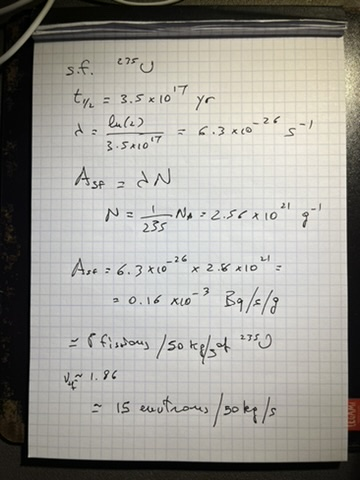 s.f. ²³⁵U
t₁/₂ = 3.5 × 10¹⁷ yr
λ = ln(2) / 3.5×10¹⁷ = 6.3 × 10⁻²⁶ s⁻¹
A_SF = λN
N = 1/235 N_A = 2.56 × 10²¹ g⁻¹
A_SF = 6.3 × 10⁻²⁶ × 2.6 × 10²¹ =
= 0.16 × 10⁻³ Bq/s/g
≈ 8 fissions /50 kg/s of ²³⁵U
≈ 1.86
≈ 15 neutrons /50 kg/s